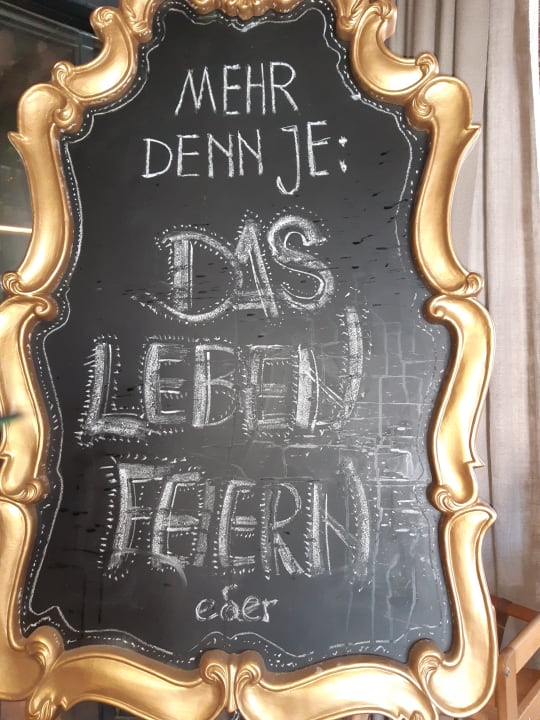 MEHR
DENN JE:
DAS
LEBEN
FEIERN